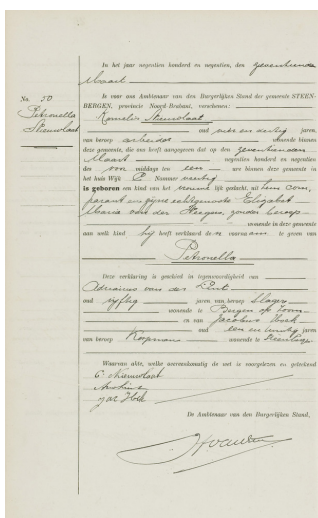 In het jaar negentien honderd en negentien, den zeventienden
Maart
is voor ons Ambtenaar van den Burgerlijken Stand der gemeente STEEN-
BERGEN, provincie Noord-Brabant, verschenen:
No. 50
Petronella
Nieuwlaat
Kornelis Nieuwlaat
oud vier en dertig jaren
van beroep arbeider wonende binnen
deze gemeente, die ons heeft aangegeven dat op den zeventienden
Maart negentien honderd en negentien
des voor middags ten een ure binnen deze gemeente in
het huis Wijk E Nummer
is geboren een kind van het vrouwelijk geslacht, uit hem com-
parant en zijne echtgenoote Elizabet
Maria van der Steegen, zonder beroep
wonende in deze gemeente
aan welk kind hij heeft verklaard den voornaam te geven van
Petronella
Deze verklaring is geschied in tegenwoordigheid van
Adrianus van der Lint
oud vijftig jaren van beroep Slager
wonende te Bergen op Zoom
en van Jacobus Hoek
oud een en twintig jaren
van beroep Koopman wonende te Steenbergen
Waarvan akte, welke overeenkomstig de wet is voorgelezen en geteekend
C. Nieuwlaat
Jac Hoek
De Ambtenaar van den Burgerlijken Stand,